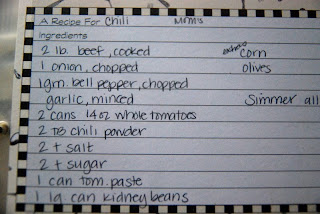 A Recipe For Chili Mom's
Ingredients
2 lb. beef, cooked corn
1 onion, chopped olives
1 grn. bell pepper, chopped
garlic, minced Simmer all
2 cans 14 oz whole tomatoes
2 TB chili powder
2 t salt
2 t sugar
1 can tom. paste
1 lg. can kidney beans